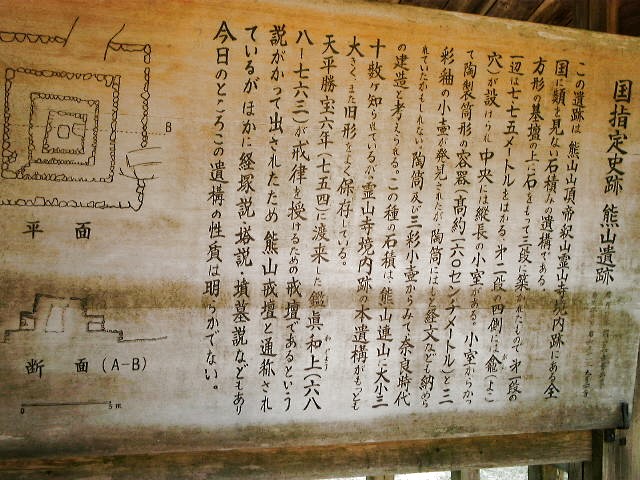 国指定史跡 熊山遺跡
この遺跡は、熊山山頂帝釈山霊山寺境内跡にある全
国に類を見ない石積みの遺構である。
方形の基壇の上に石をもって三段に築かれたもので、第一段の
一辺は七・七五メートルをはかる。第二段の四側には龕(よこ
穴)が設けられ中央には縦長の小室がある。小室からかつ
て陶製筒形の容器(高約一六〇センチメートル)と三
彩釉の小壺が発見されたが、陶筒には
経文なども納めら
れていたかもしれない。陶筒及び三彩小壺からみて、奈良時代
の建造と考えられる。この種の石積は、熊山連山に大小三
十数ヶ知られているが、霊山寺境内跡の本遺構がもっとも
大きく、また旧形をよく保存している。
天平勝宝六年(七五四)に渡来した鑑真和上(六八
わじょう
八ー七六三)が戒律を授けるための戒壇であるという
説がかって出されたため、熊山戒壇と通称され
ているがほかに経塚説・塔説・墳墓説などもあり
今日のところこの遺構の性質は明らかでない。
B
平 面
断 面 (A-B)
0 5m